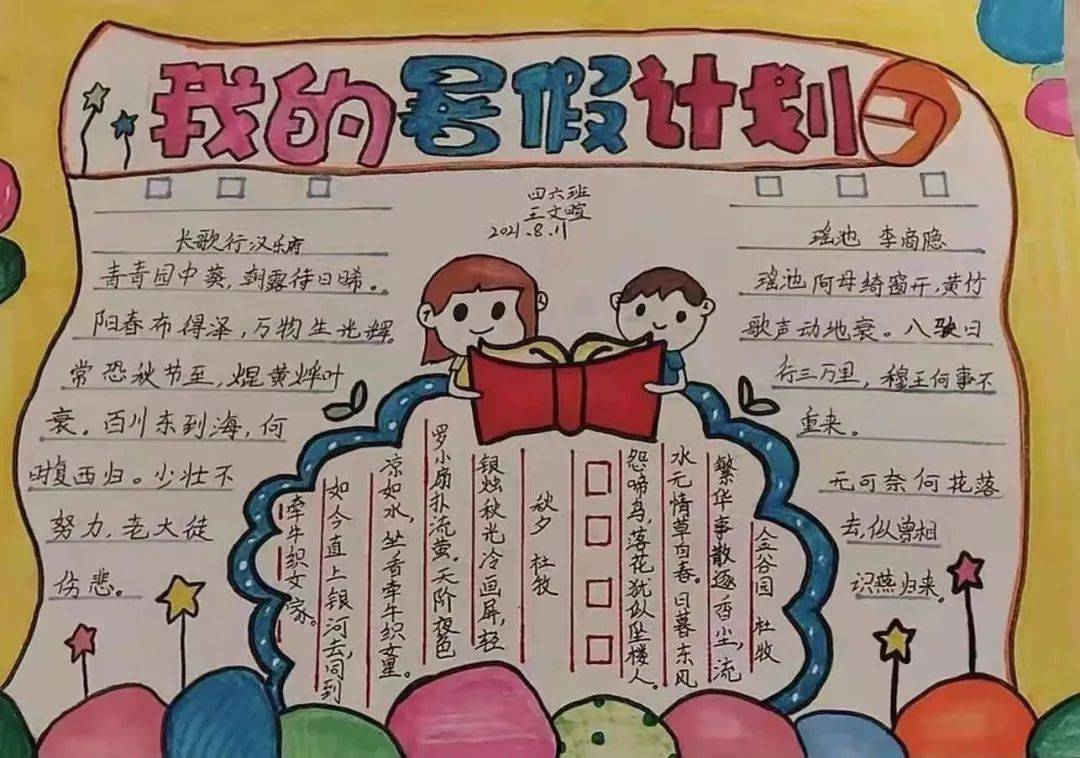 我的暑假计划
四六班
王文暄
2021.8.11
长歌行 汉乐府
青青园中葵，朝露待日晞。
阳春布得泽，万物生光辉。
常恐秋节至，焜黄烨叶
衰。百川东到海，何
时复西归。少壮不
努力，老大徒
伤悲。
瑶池 李商隐
瑶池阿母绮窗开，黄竹
歌声动地衰。八骏日
行三万里，穆王何事不
重来。
无可奈何花落
去，似曾相
识燕归来。
金谷园 杜牧
繁华事散逐香尘，流
水元情草自春。日暮东风
怨啼鸟，落花犹似坠楼人。
秋夕 杜牧
银烛秋光冷画屏，轻
罗小扇扑流萤。天阶夜色
凉如水，坐看牵牛织女星。
如今直上银河去，同到
牵牛织女家。